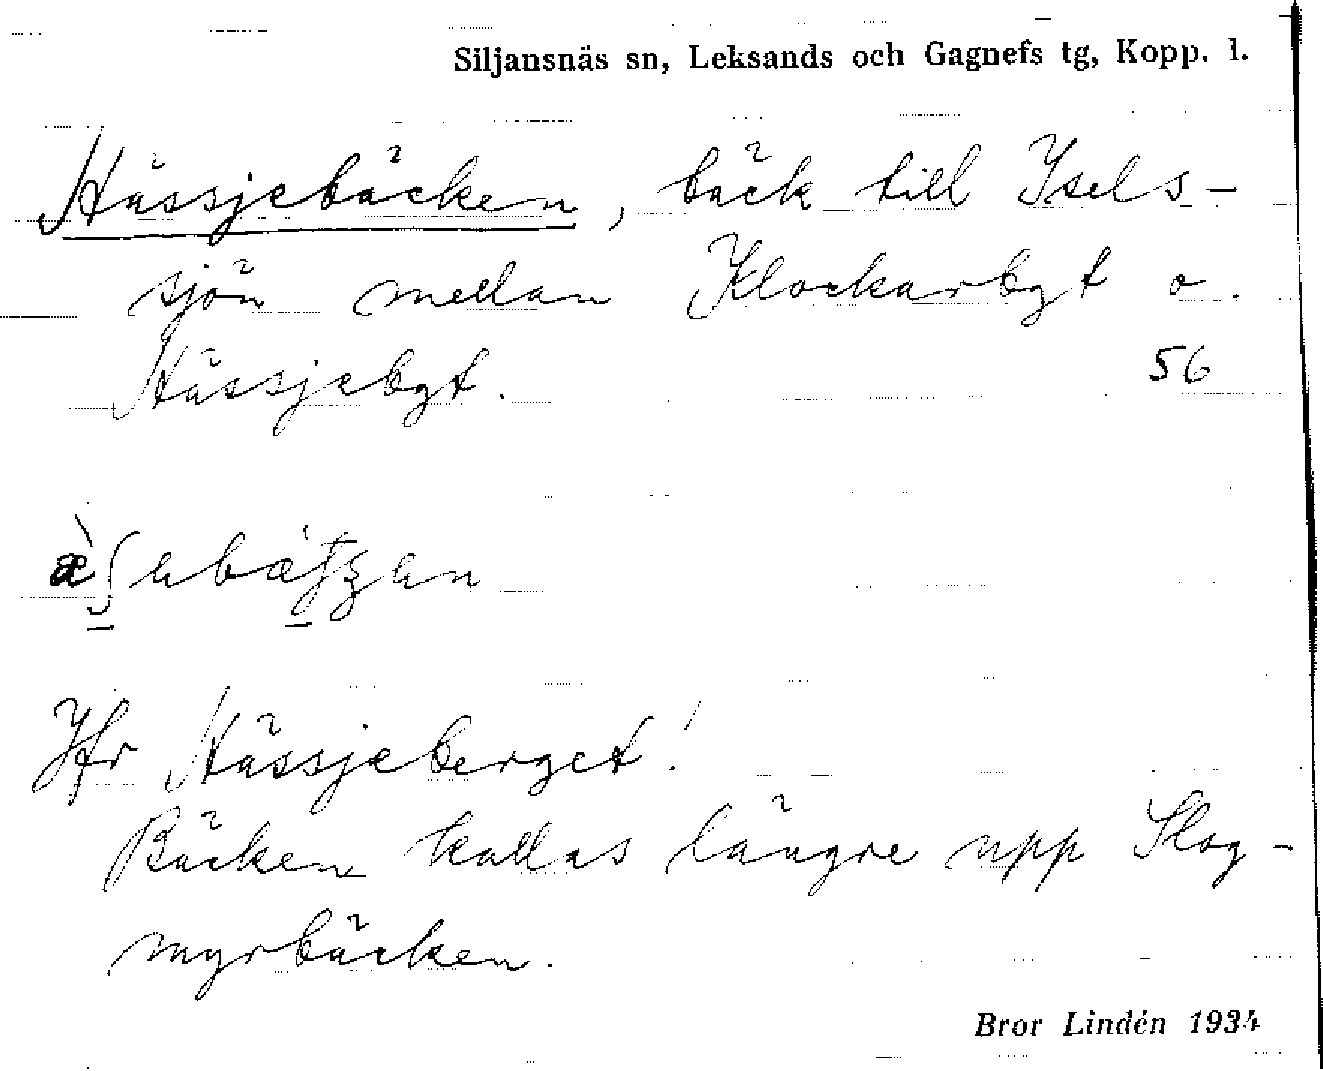 Siljansnäs sn, Leksands och Gagnefs tg, Kopp. l.
Hässjebäcken, bäck till Ysels-
sjön mellan Klockarbgt o.
Hässjebgt.
56
Jfr Hässjeberget!
Bäcken kallas längre upp Slog-
myrbäcken.
Bror Lindén 1934